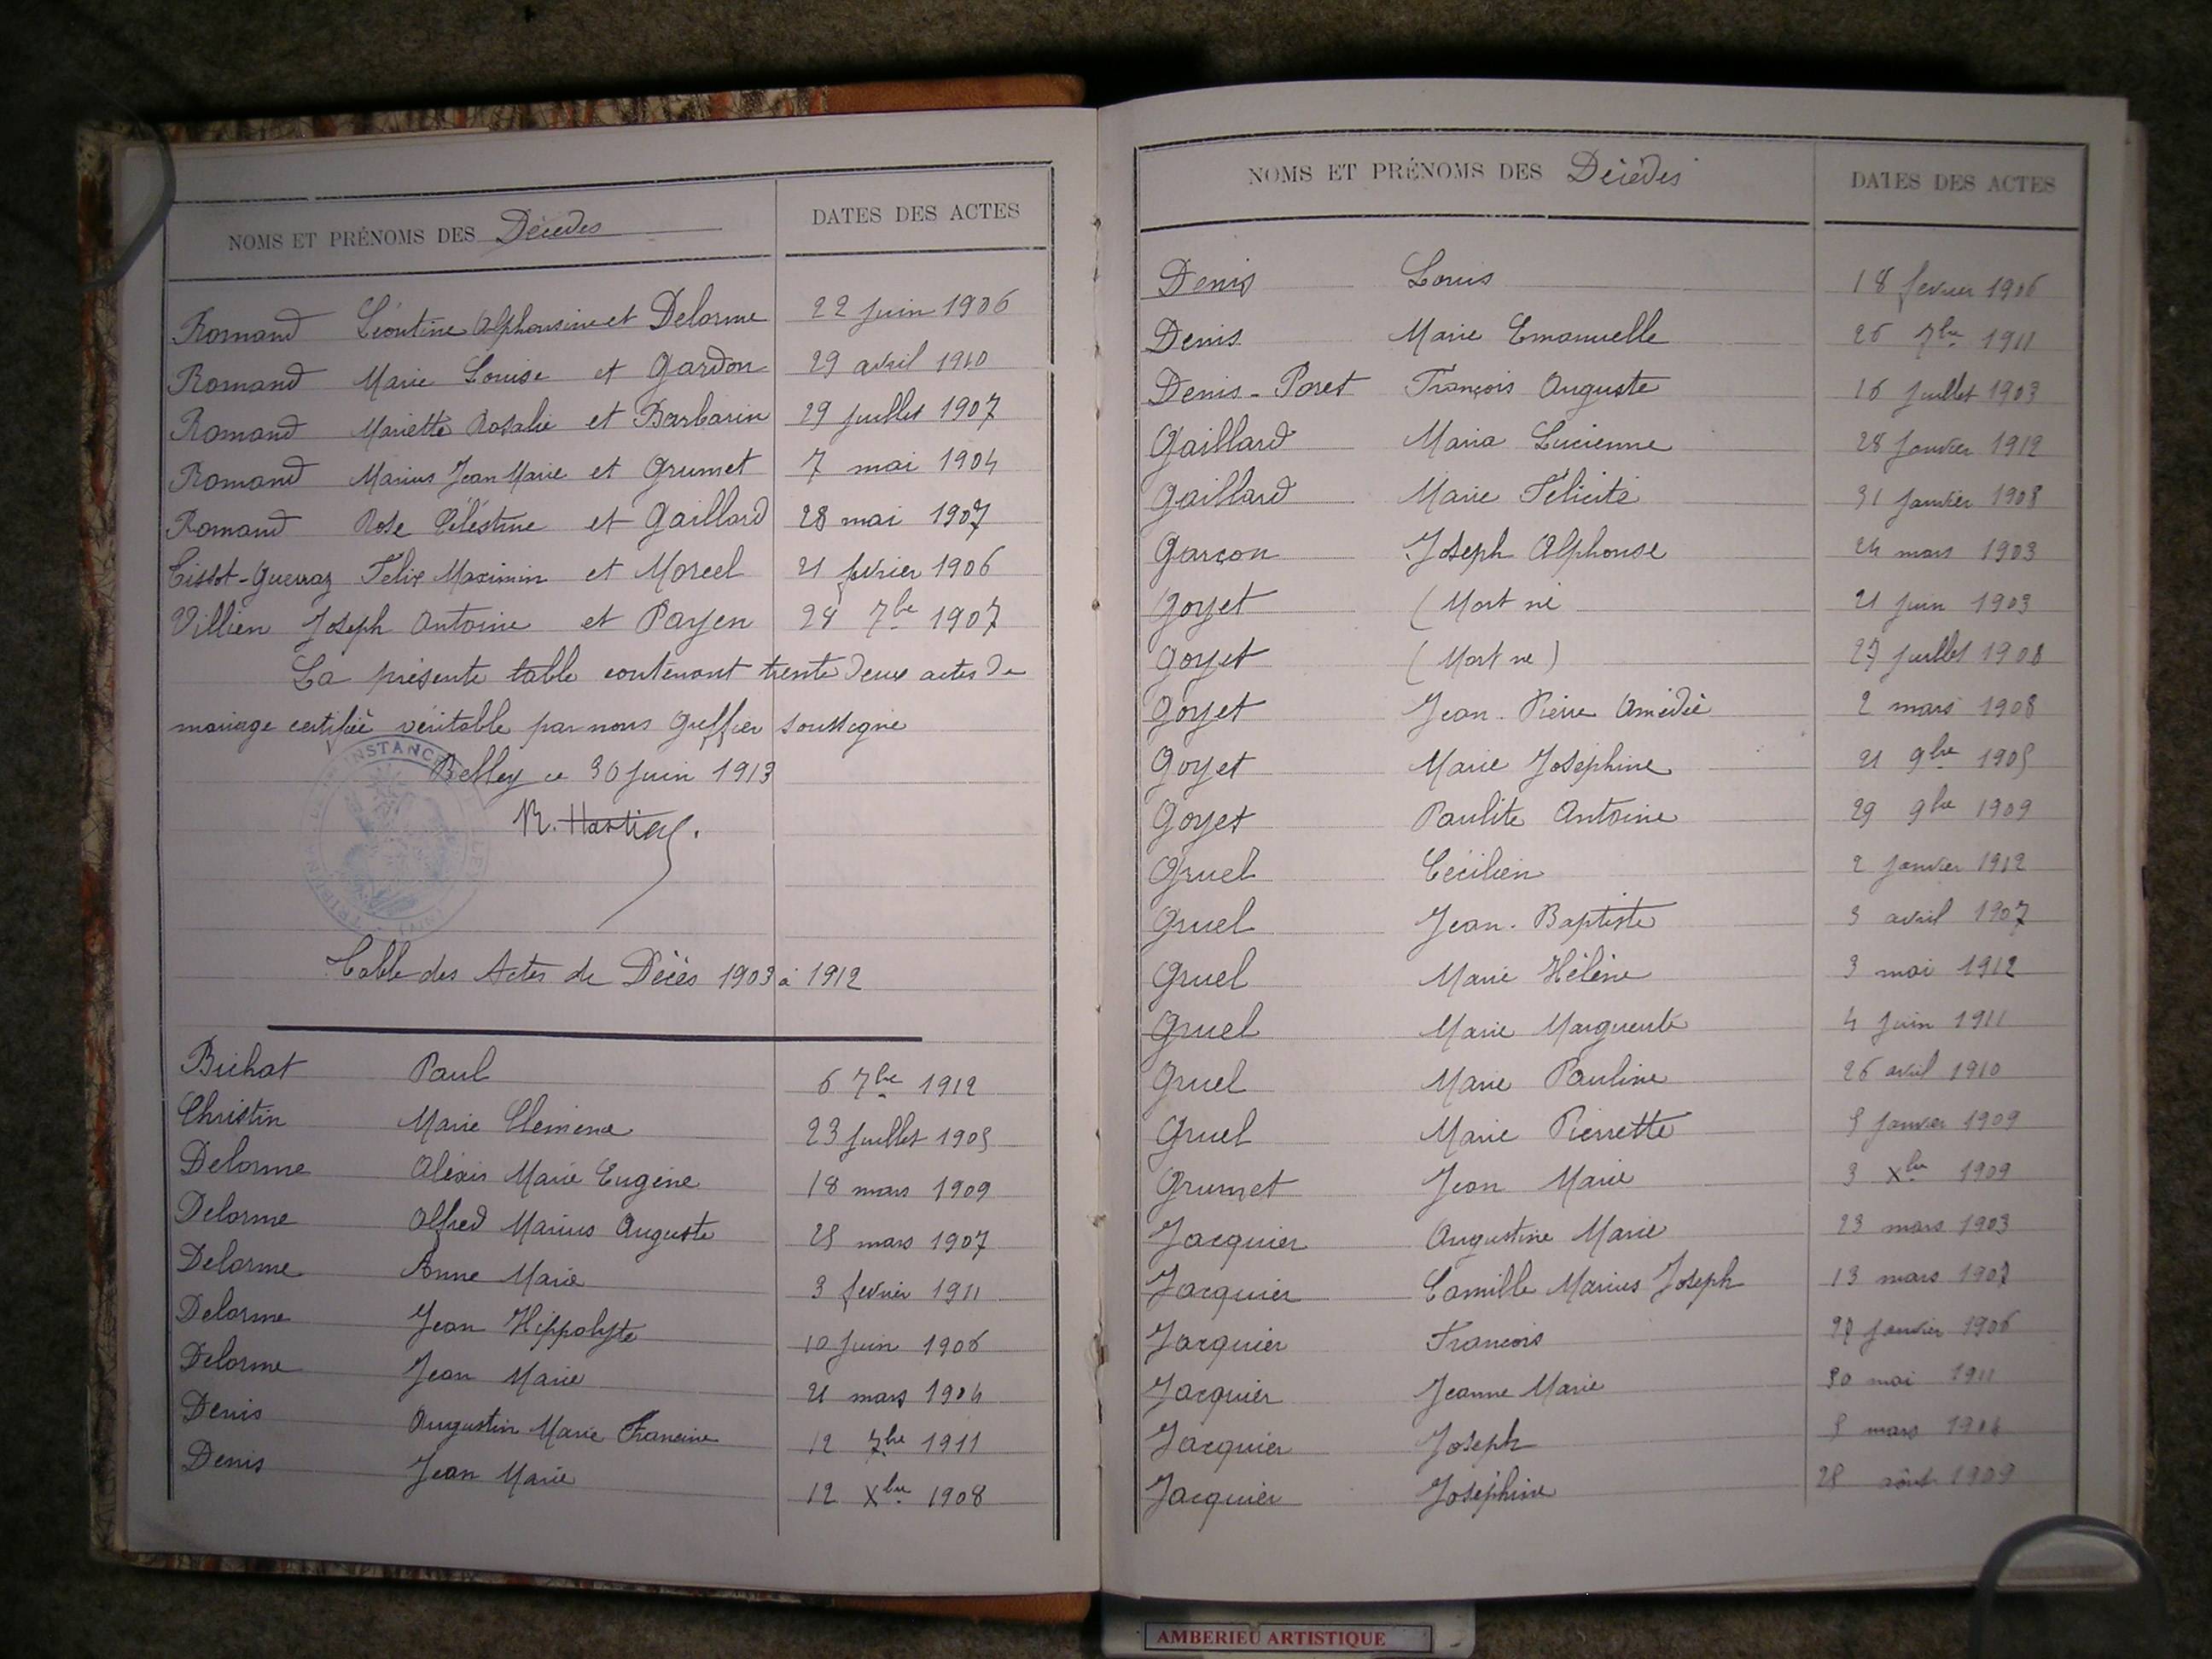 NOMS ET PRÉNOMS DES Décédés DATES DES ACTES
Romand Léontine Alphonsine et Delorme 22 juin 1906
Romand Marie Louise et Gardon 29 avril 1910
Romand Mariette Rosalie et Barbarin 29 juillet 1907
Romand Marius Jean Marie et Grumet 7 mai 1904
Romand Rose Célestine et Gaillard 28 mai 1907
Tissot-Guerraz Felix Maximin et Morcel 21 février 1906
Villien Joseph Antoine et Payen 24 7bre 1907
La présente table contenant trente deux actes de
mariage certifiée véritable par nous Greffier soussigné
Belley ce 30 juin 1913
TRIBUNAL INSTANCE
Table des Actes de Décès 1903 à 1912
Bichat Paul 6 7bre 1912
Christin Marie Clémence 23 juillet 1905
Delorme Alexis Marie Eugène 18 mars 1909
Delorme Alfred Marius Auguste 25 mars 1907
Delorme Anne Marie 3 fevrier 1911
Delorme Jean Hippolyte 10 juin 1906
Delorme Jean Marie 21 mars 1904
Denis Augustin Marie Francine 12 7bre 1911
Denis Jean Marie 12 Xbre 1908
NOMS ET PRÉNOMS DES Décédés DATES DES ACTES
Denis Louis 18 fevrier 1906
Denis Marie Emanuelle 26 7bre 1911
Denis-Poret François Auguste 16 juillet 1903
Gaillard Maria Lucienne 28 janvier 1912
Gaillard Marie Félicité 31 janvier 1908
Garçon Joseph Alphonse 24 mars 1903
Goyet (Mort né 21 juin 1903
Goyet (Mort né) 27 juillet 1908
Goyet Jean-Pierre Amédée 2 mars 1908
Goyet Marie Joséphine 21 9bre 1905
Goyet Paulite Antoine 29 9bre 1909
Gruel Cécilien 2 janvier 1912
Gruel Jean-Baptiste 3 avril 1907
Gruel Marie Hélène 3 mai 1912
Gruel Marie Marguerite 4 juin 1911
Gruel Marie Pauline 26 avril 1910
Gruel Marie Pierrette 5 janvier 1909
Grumet Jean Marie 3 Xbre 1909
Jacquier Augustine Marie 23 mars 1903
Jacquier Camille Marius Joseph 13 mars 1907
Jacquier Francois janvier 1906
Jacquier Jeanne Marie 30 mai 1911
Jacquier Joseph mars
Jacquier Joséphine 28 août 1909
AMBERIEU ARTISTIQUE